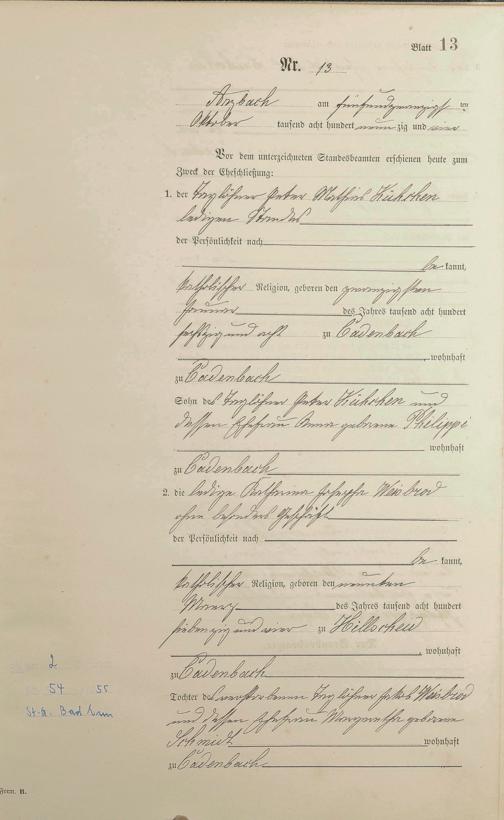 Blatt 13
Nr. 13
Arzbach am fünfundzwanzigsten
Oktober tausend acht hundert neunzig und vier
Vor dem unterzeichneten Standesbeamten erschienen heute zum
Zweck der Eheschließung:
1. der Taglöhner Peter Mathias Kükchen
ledigen Standes
der Persönlichkeit nach
be kannt,
katholischer Religion, geboren den zwanzigsten
Januar des Jahres tausend acht hundert
sechszig und acht zu Cadenbach
, wohnhaft
zu Cadenbach
Sohn des Taglöhner Peter Kükchen und
dessen Ehefrau Anna geborene Philippi
wohnhaft
zu Cadenbach
2. die ledige Katharina Josepha Weisbrod
ohne besonderes Geschäft
der Persönlichkeit nach
be kannt,
katholischer Religion, geboren den neunten
Maerz des Jahres tausend acht hundert
siebenzig und vier zu Hillscheid
, wohnhaft
zu Cadenbach
Tochter des verstorbenen Taglöhner Jakob Weisbrod
und dessen Ehefrau Margaretha geborene
Schmidt wohnhaft
zu Cadenbach
2
54 55
St.A. Bad Ems
Form. B.